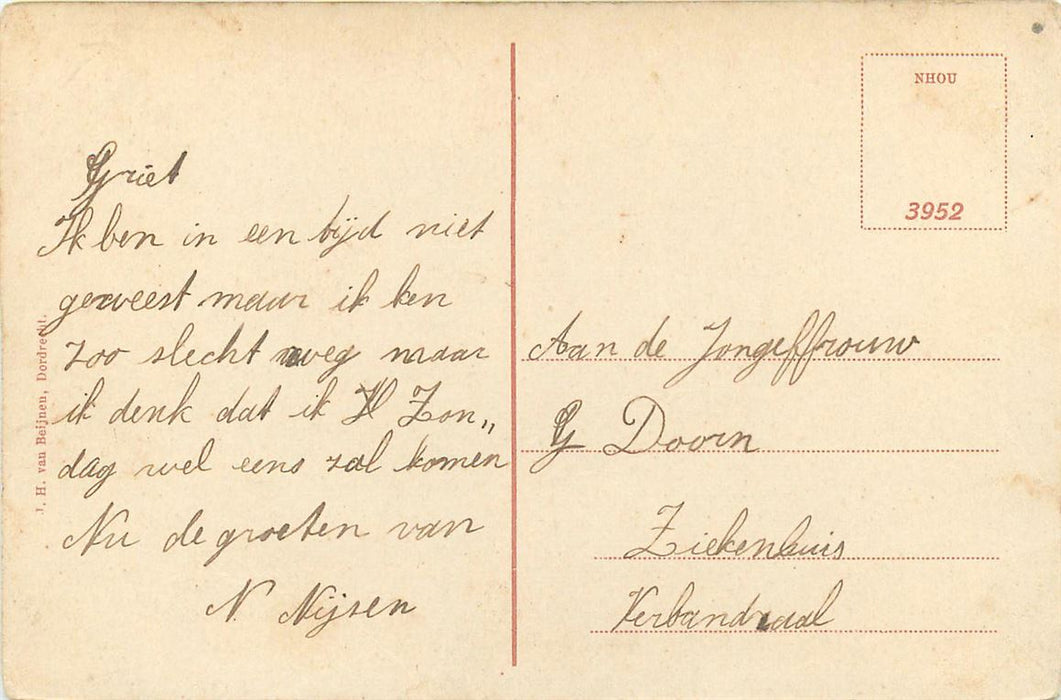 Griet
Ik ben in een tijd niet
geweest maar ik ken
zoo slecht weg maar
ik denk dat ik Zon„
dag wel eens zal komen
Nu de groeten van
N. Nijsen
J. H. van Beijnen, Dordrecht.
NHOU
3952
Aan de Jongeffrouw
G Doorn
Ziekenhuis
Verbandzaal